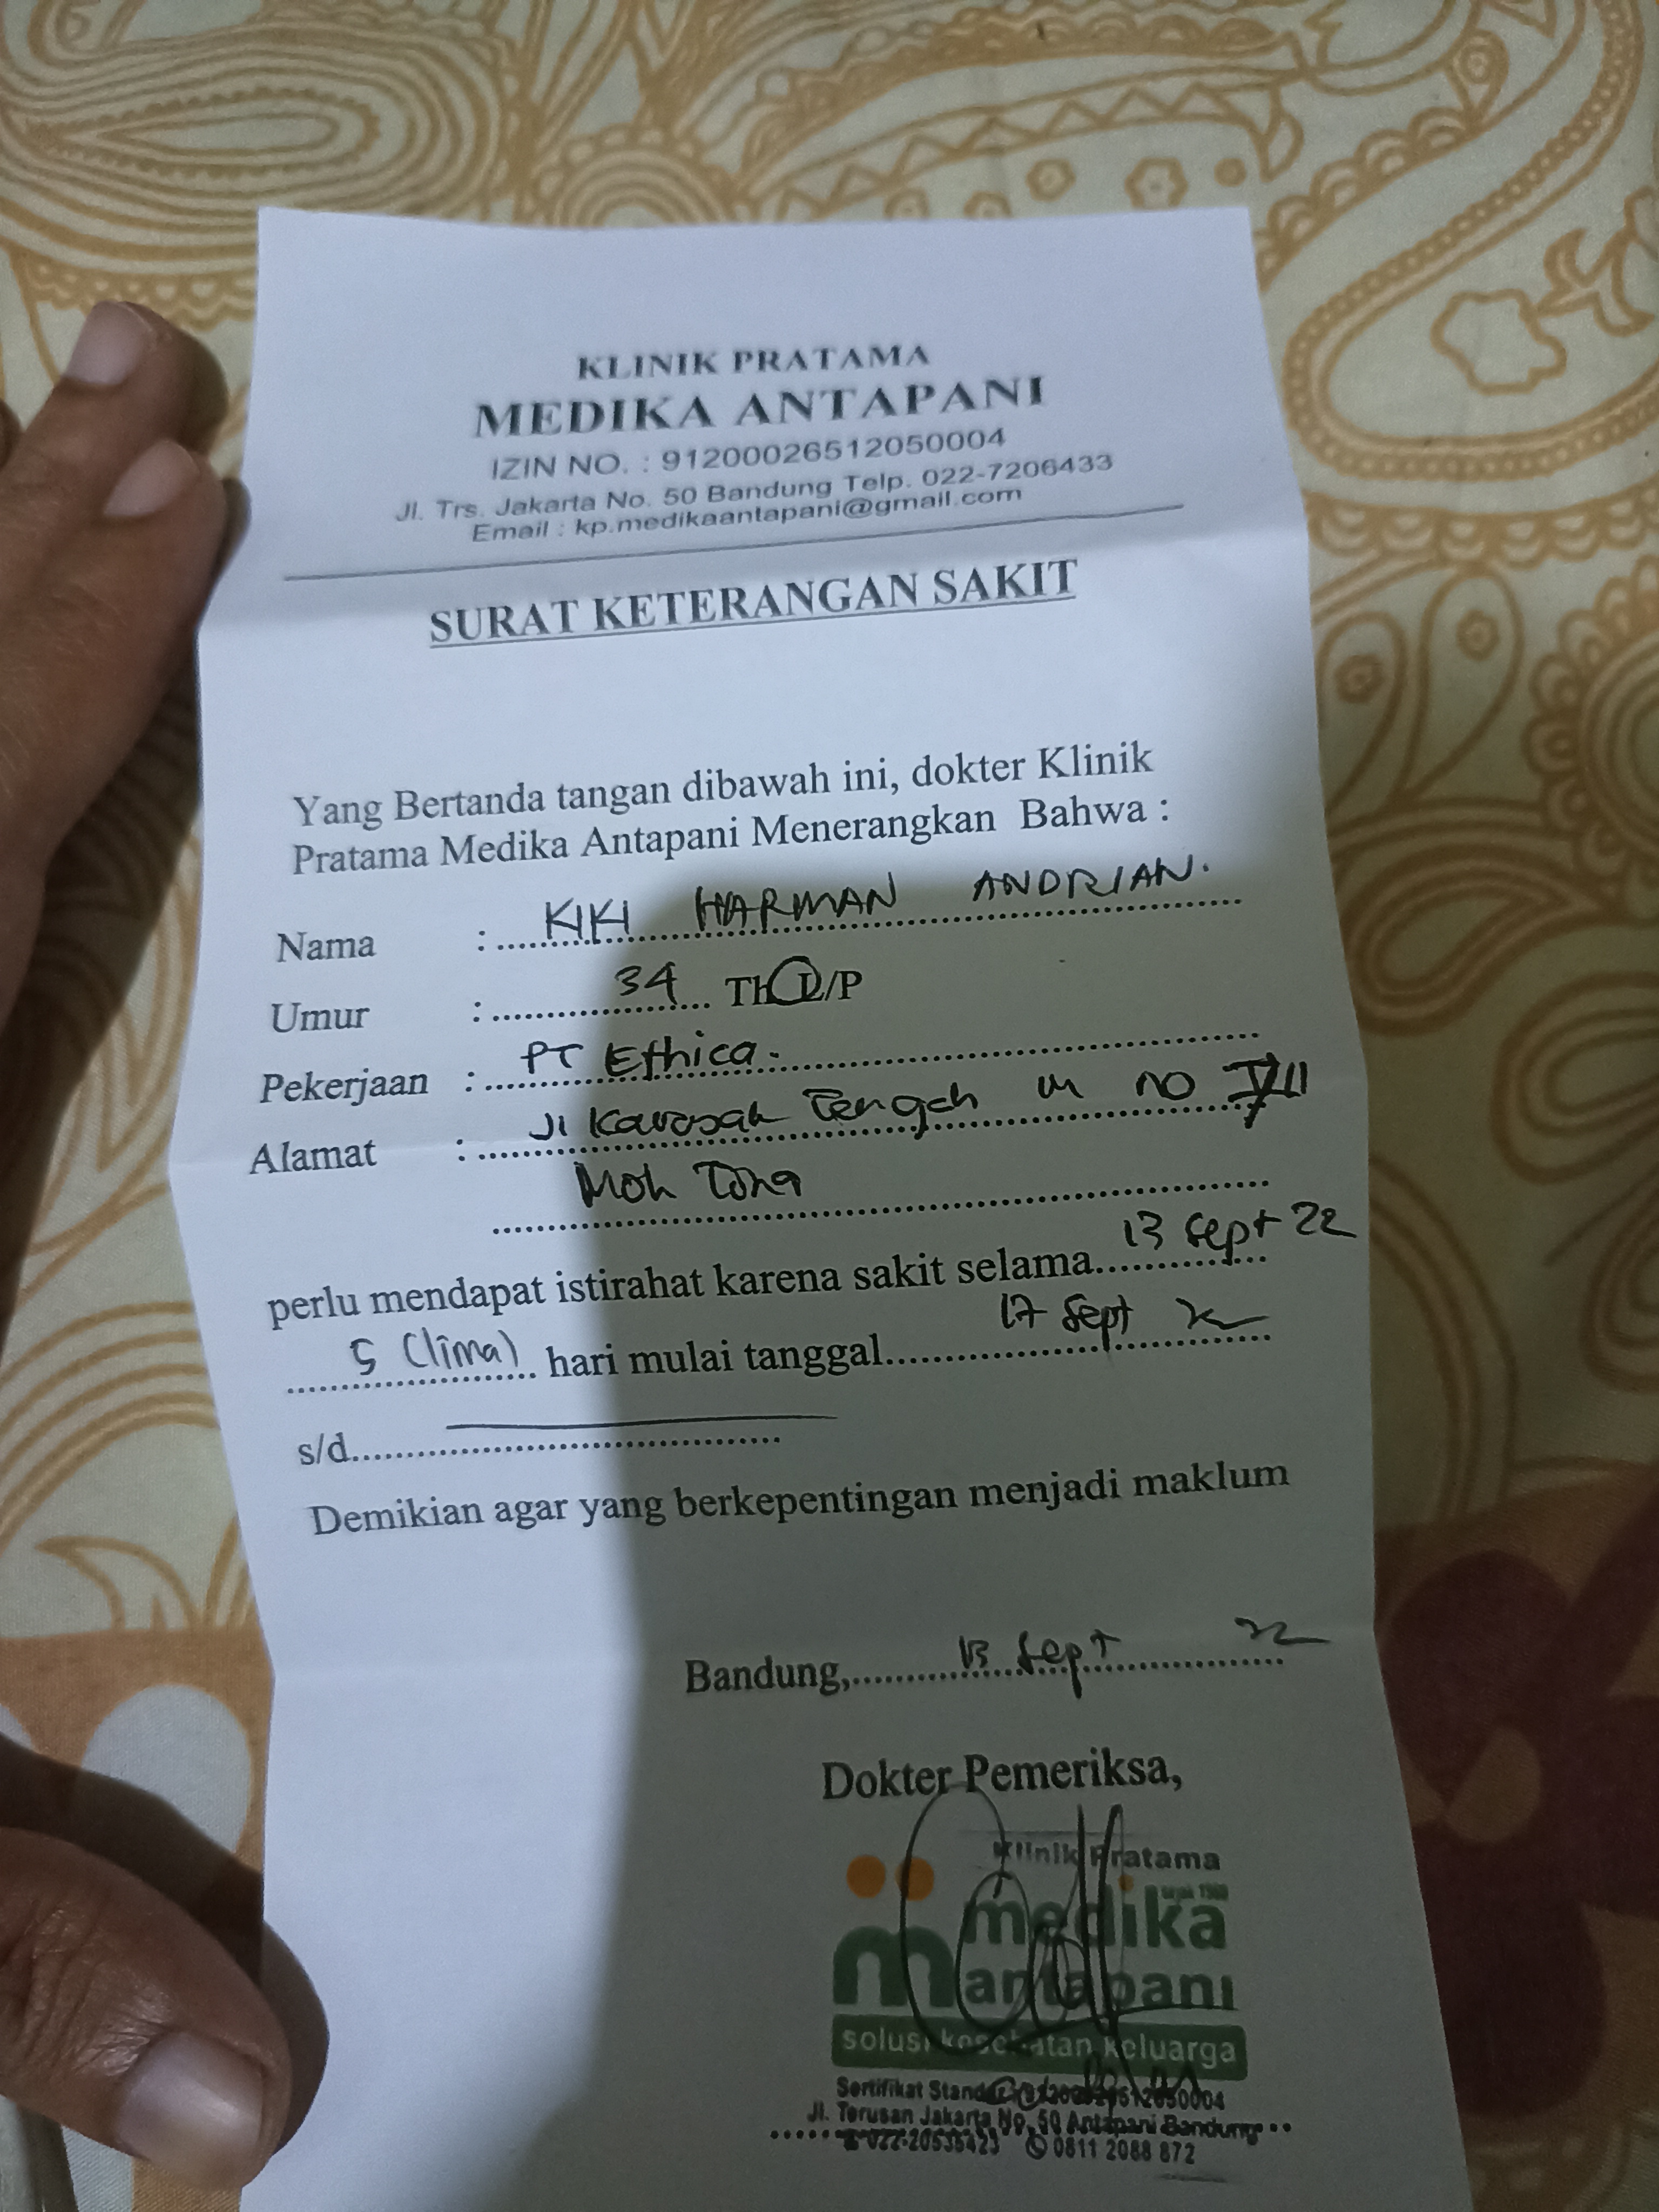 KLINIK PRATAMA
MEDIKA ANTAPANI
IZIN NO. : 91200026512050004
Jl. Trs. Jakarta No. 50 Bandung Telp. 022-7206433
Email : kp.medikaantapani@gmail.com
SURAT KETERANGAN SAKIT
Yang Bertanda tangan dibawah ini, dokter Klinik
Pratama Medika Antapani Menerangkan Bahwa :
Nama : KIKI HARMAN ANDRIAN.
Umur : 34 Th L/P
Pekerjaan : PT Ethica.
Alamat : Jl Tengah no VII
Moh Toha
perlu mendapat istirahat karena sakit selama 13 Sept 22
5 (lima) hari mulai tanggal 17 Sept 22
s/d
Demikian agar yang berkepentingan menjadi maklum
Bandung, 13 Sept 22
Dokter Pemeriksa,
Klinik Pratama
sejak 1980
medika
antapani
solusi kesehatan keluarga
Sertifikat
Jl. Terusan Jakarta No. 50 Antapani Bandung
022-20535423 0811 2088 872